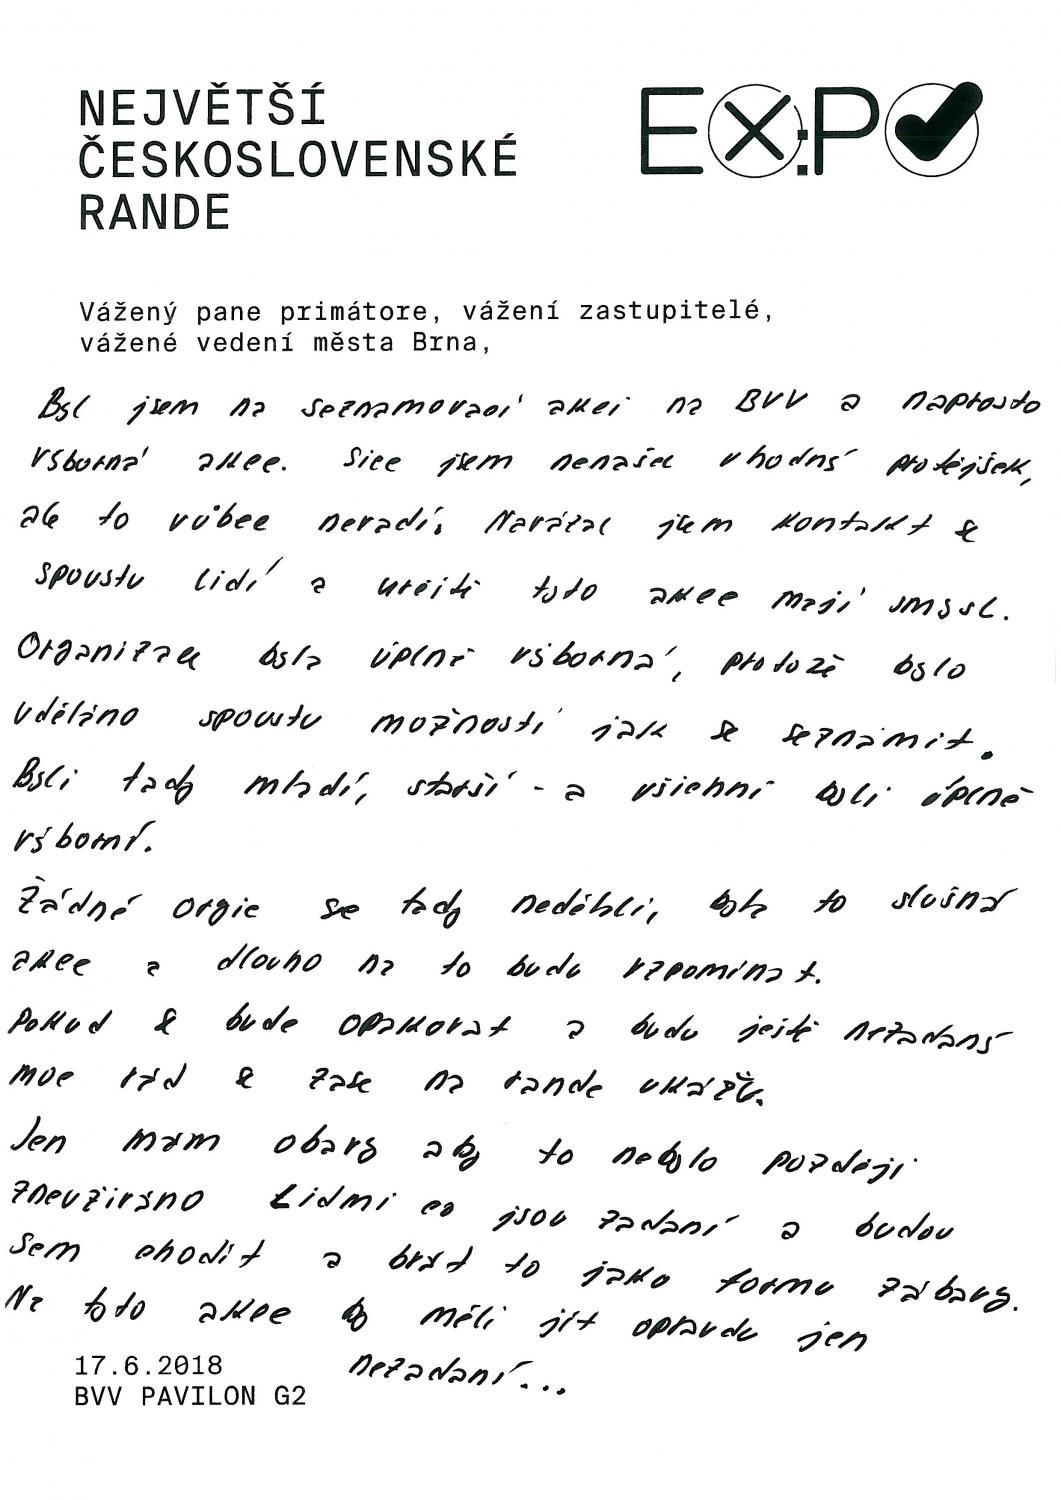 NEJVĚTŠÍ
ČESKOSLOVENSKÉ
RANDE
EX:PO
Vážený pane primátore, vážení zastupitelé,
vážené vedení města Brna,
Byl jsem na seznamovací akci na BVV a naprosto
výborná akce. Sice jsem nenašel vhodný protějšek,
ale to vůbec nevadí. Navázal jsem kontakt se
spoustu lidí a určitě tyto akce mají smysl.
Organizace byla úplně výborná, protože bylo
uděláno spoustu možností jak se seznámit.
Byli tady mladí, starší - a všichni byli úplně
výborní.
Žádné orgie se tady neděhli, byla to slušná
akce a dlouho na to budu vzpomínat.
Pokud se bude opakovat a budu ještě nezadaný
moc rád se zase na rande ukážu.
Jen mám obavy aby to nebylo později
zneužíváno Lidmi co jsou zadaní a budou
sem chodit a brát to jako formu zábavy.
Na tyto akce by měli jít opravdu jen
nezadaní...
17.6.2018
BVV PAVILON G2